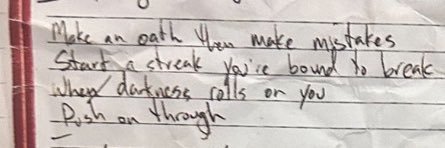 Make an oath then make mistakes
Start a streak you're bound to break
When darkness rolls on you
Push on through